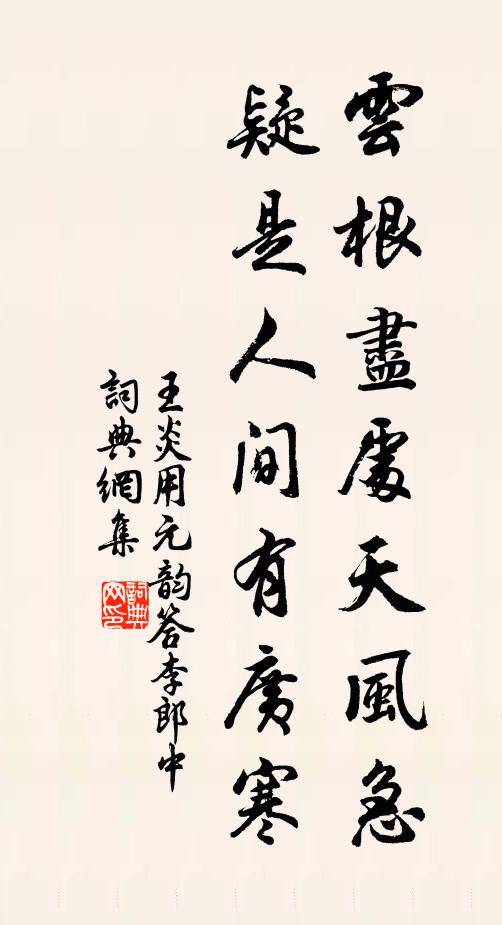 雲根盡處天風急
疑是人間有廣寒
王炎用元韵答李郎中
詞典網集
詞典網印